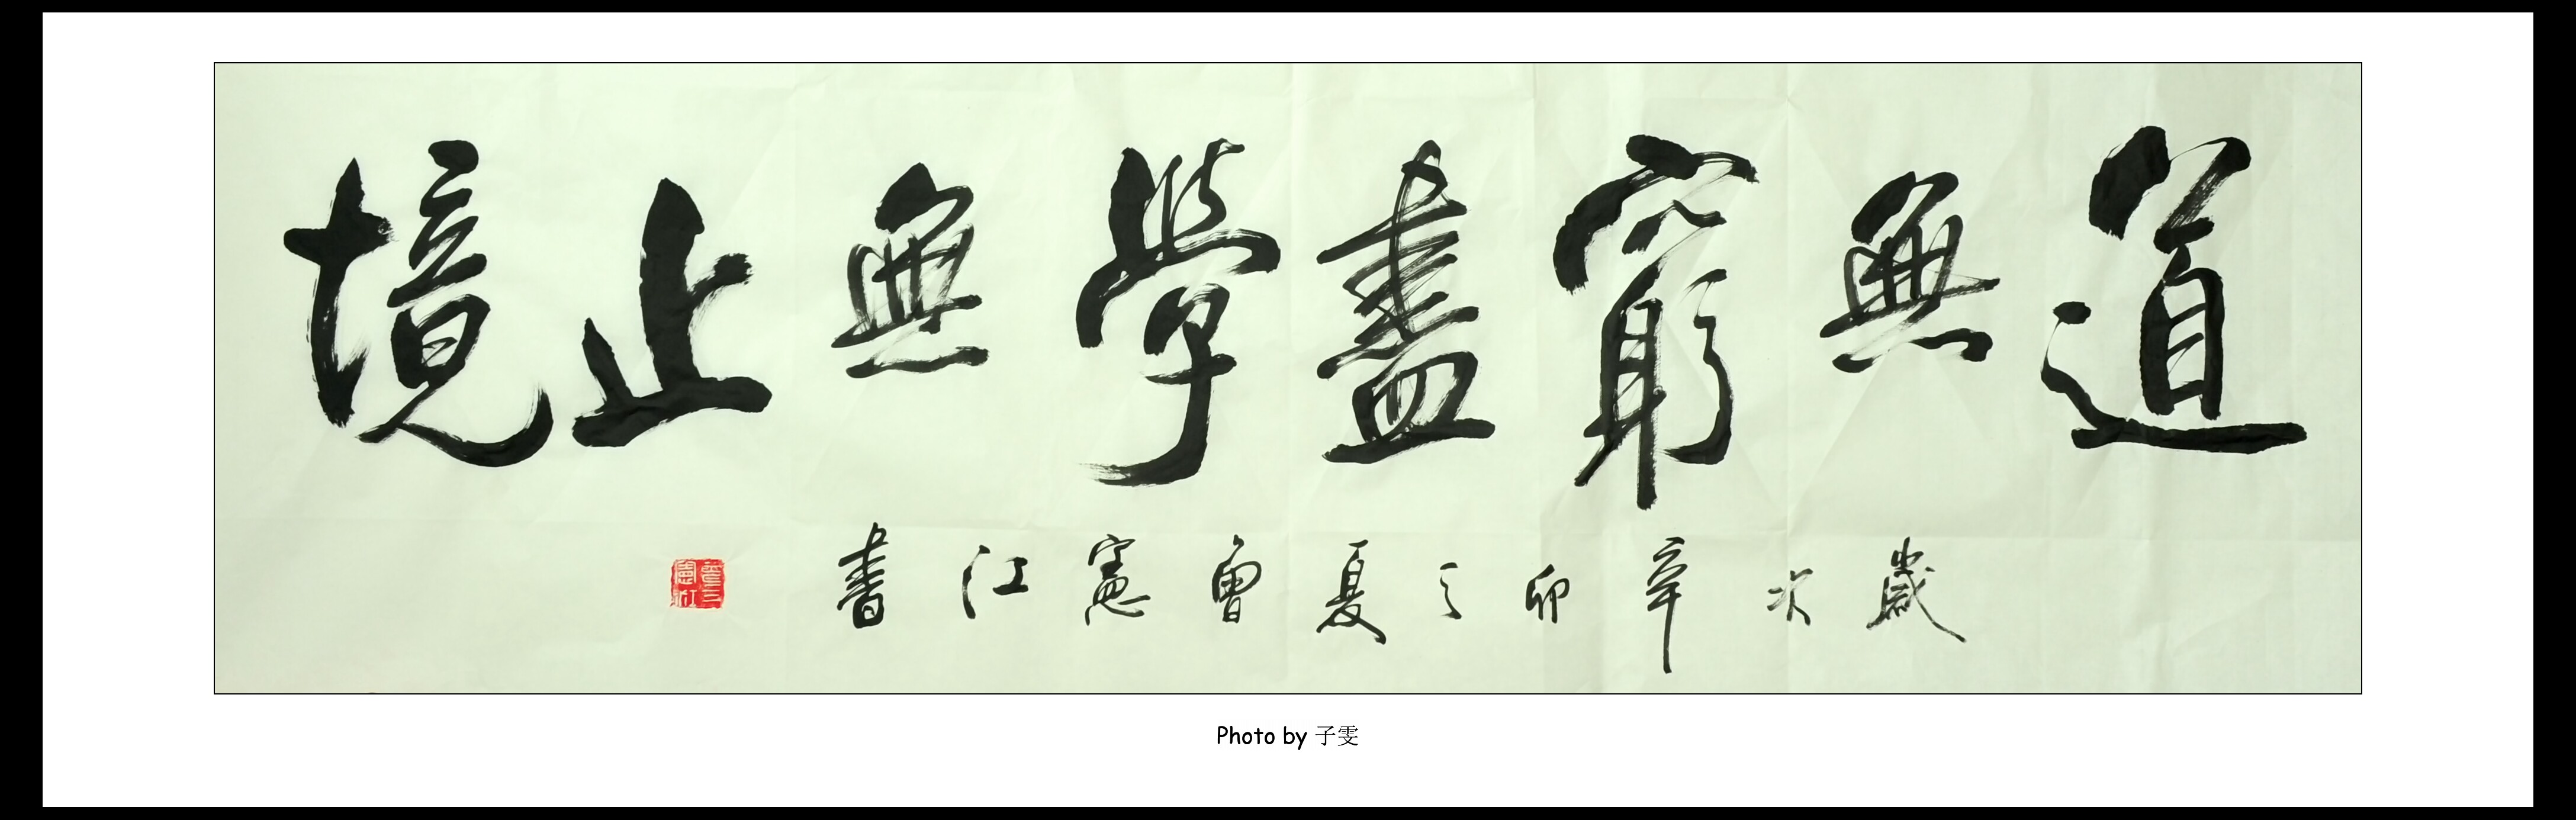 道無窮盡學無止境
歲次辛卯之夏曾憲江書
Photo by 子雯